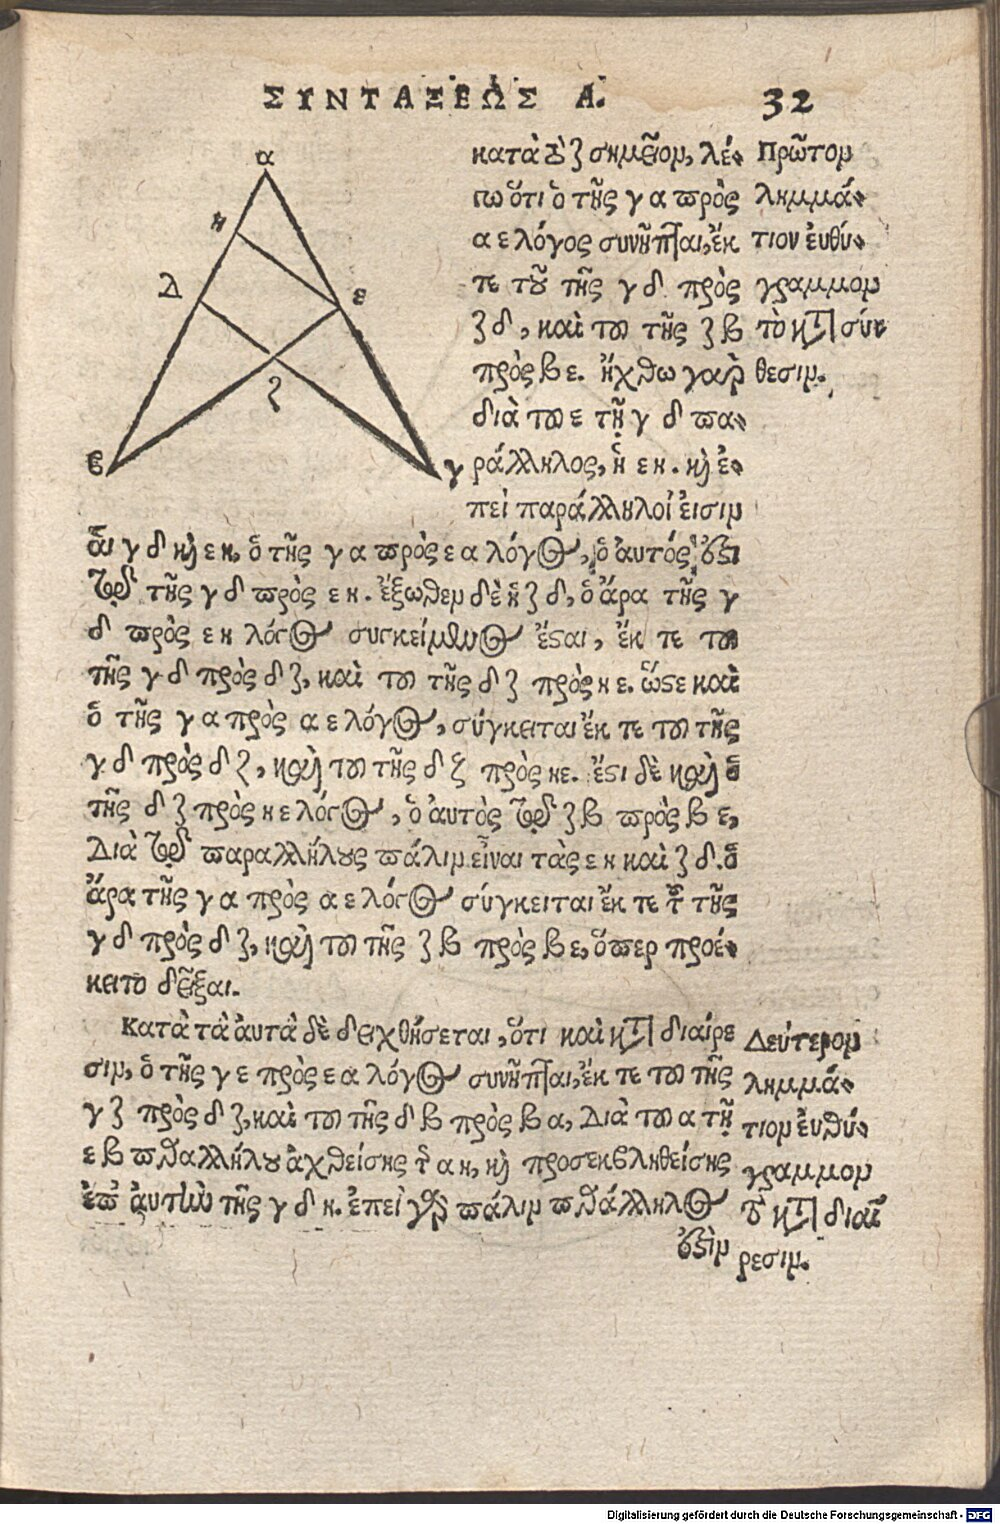 ΣΥΝΤΑΞΕΩΣ Α. 32
α
η
Δ
ε
ζ
β
γ
κατὰ τὸ ζ σημεῖον, λέ-
γω ὅτι ὁ τῆς γ α πρὸς
α ε λόγος συνῆπται, ἔκ
τε τοῦ τῆς γ δ πρὸς
ζ δ, καὶ του τῆς ζ β
πρὸς β ε. ἤχθω γαρ
διὰ του ε τῇ γ δ πα-
ράλληλος, ἡ ε η. καὶ ἐ-
πεὶ παράλληλοί εἰσιν
Πρῶτον
λημμά-
τιον ἐυθύ-
γραμμον
τὸ κτ΄ σύν
θεσιν.
ἁι γ δ καὶ ε η, ὁ τῆς γ α πρὸς ε α λόγος, ὁ ἀυτός ἐστι
τῷ τῆς γ δ πρὸς ε η. ἔξωθεν δὲ ἡ ζ δ, ὁ ἄρα τῆς γ
δ πρὸς ε η λόγος συγκείμενος ἔσται, ἔκ τε του
τῆς γ δ πρὸς δ ζ, καὶ του τῆς δ ζ πρὸς η ε. ὥστε καὶ
ὁ τῆς γ α πρὸς α ε λόγος, σύγκειται ἔκ τε του τῆς
γ δ πρὸς δ ζ, καὶ του τῆς δ ζ πρὸς η ε. ἔστι δὲ καὶ ὁ
τῆς δ ζ πρὸς η ε λόγος, ὁ ἀυτὸς τῷ ζ β πρὸς β ε,
Διὰ τὸ παραλλήλους πάλιν εἶναι τὰς ε η καὶ ζ δ. ὁ
ἄρα τῆς γ α πρὸς α ε λόγος σύγκειται ἔκ τε τοῦ τῆς
γ δ πρὸς δ ζ, καὶ του τῆς ζ β πρὸς β ε, ὅπερ προέ-
κειτο δεῖξαι.
Κατὰ τὰ ἀυτὰ δὲ δειχθήσεται, ὅτι καὶ κτ΄ διαίρε
σιν, ὁ τῆς γ ε πρὸς ε α λόγος συνῆπται, ἔκ τε του τῆς
γ ζ πρὸς δ ζ, καὶ του τῆς δ β πρὸς β α, Διὰ του α τῇ
ε β παραλλήλου ἀχθείσης τῆς α η, καὶ προσεκβληθείσης
ἐπ᾽ ἀυτὴν τῆς γ δ η. ἐπεὶ γὰρ πάλιν παράλληλος
ἐστὶν
Δεύτερον
λημμά-
τιον ἐυθύ-
γραμμον
τὸ κτ΄ διαί
ρεσιν.
Digitalisierung gefördert durch die Deutsche Forschungsgemeinschaft - DFG